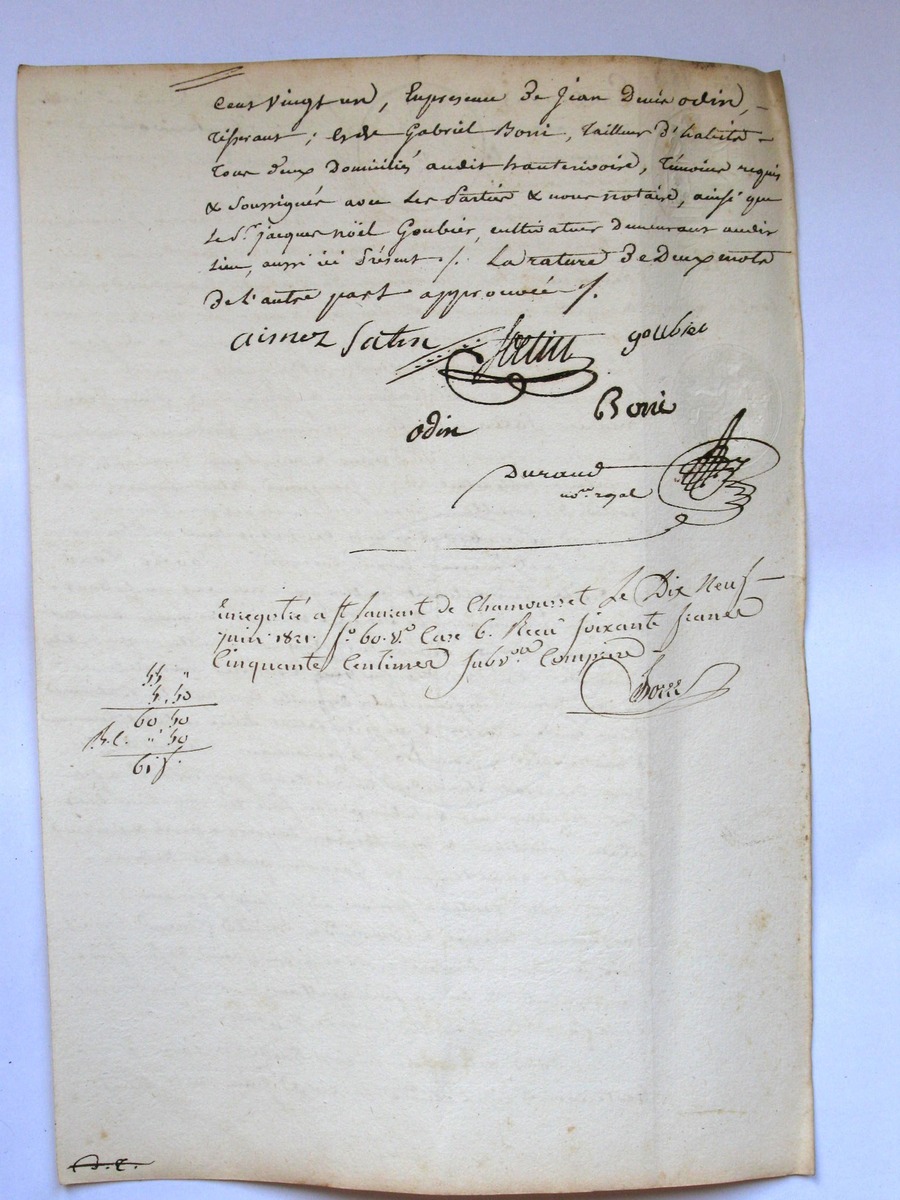 Cent vingt un, En presence de Jean Denis odin,
Tisserant; et de Gabriel Boni, Tailleur d'habits
tous deux Domiciliés audit hauterivoire, témoins requis
& soussignés avec les Parties & nous notaire, ainsi que
le Sr. jacques noël Goubier, cultivateur demeurant audit
lieu, aussi ici Présent /. La rature de Deux mots
de l'autre part approuvée /.
aimez Satin goubier
odin Boni
Durand
nore. royal
Enregistré a St Laurent de Chamousset Le Dix Neuf
juin 1821. fo. 60. Vo. Case 6. Reçu soixante francs
Cinquante Centimes subvon Comprise
55 "
5.50
60 50
" 50
61 f.